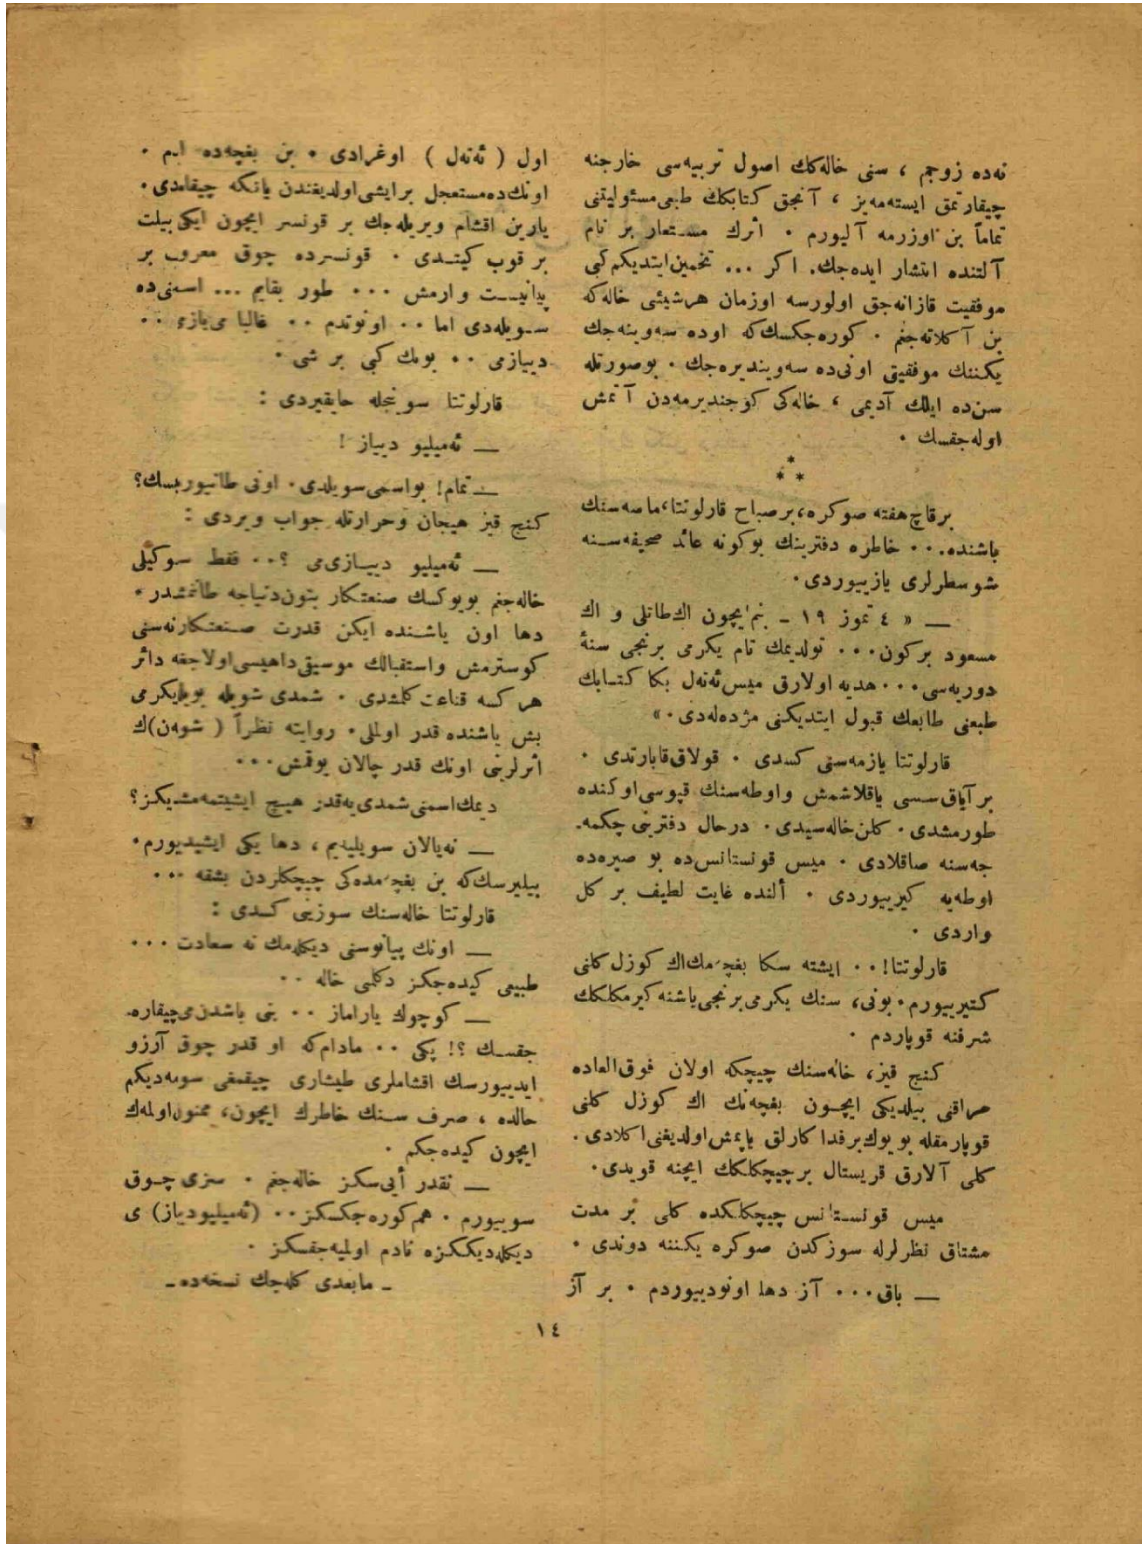 نه‌ده زوجم ، سنى خاله‌كك اصول تربيه‌سى خارجنه
چيقارتمق ايسته‌مه‌يز ، آنجق كتابكك طبعى مسئوليتنى
تماماً بن اوزرمه آليورم ٠ اثرك مستعار بر نام
آلتنده انتشار ايده‌جك. اكر ... تخمين ايتديكم كبى
موفقيت قازانه‌جق اولورسه اوزمان هرشيئى خاله‌كه
بن آكلاته‌جغم ٠ كوره‌جكسك كه اوده سه‌وينه‌جك
يكننك موفقيتى اونى‌ده سه‌وينديره‌جك ٠ بوصورتله
سن‌ده ايلك آديمى ، خاله‌كى كوجنديرمه‌دن آتمش
اوله‌جقسك ٠
* * *
برقاچ هفته صوكره، برصباح قارلوتتا، ماصه‌سنك
باشنده... خاطره دفترينك بوكونه عائد صحيفه‌سنه
شو سطرلرى يازييوردى٠
— « ٤ تموز ١٩ - بنم ايچون اك طاتلى و اك
مسعود بركون... تولديمك تام يكرمى برنجى سنۀ
دوريه‌سى... هديه اولارق ميس ئه‌تل بكا كتابك
طبعنى طابعك قبول ايتديكنى مژده‌له‌دى٠»
قارلوتتا يازمه‌سنى كسدى ٠ قولاق قابارتدى ٠
برآياق سسى ياقلاشمش واوطه‌سنك قپوسى اوكنده
طورمشدى٠ كلن خاله‌سيدى٠ درحال دفترينى چكمه‌ـ
جه‌سنه صاقلادى ٠ ميس قونستانس‌ده بو صيره‌ده
اوطه‌يه كيرييوردى ٠ ألنده غايت لطيف بر كل
واردى ٠
قارلوتتا!٠٠ ايشته سكا بغچه‌مك اك كوزل كلنى
كتيرييورم٠ بونى، سنك يكرمى برنجى ياشنه كيرمكلكك
شرفنه قوپاردم ٠
كنج قيز، خاله‌سنك چيچكه اولان فوق‌العاده
مراقنى بيلديكى ايچون بغچه‌نك اك كوزل كلنى
قوپارمقله بويوك برفداكارلق ياپمش اولديغنى اكلادى ٠
كلى آلارق قريستال برچيچكلكك ايچنه قويدى٠
ميس قونستانس چيچكلكده كلى بر مدت
مشتاق نظرلرله سوزكدن صوكره يكننه دوندى ٠
— باق٠٠٠ آز دها اونودييوردم ٠ بر آز
اول ( ئه‌تل ) اوغرادى ٠ بن بغچه‌ده ايم ٠
اونك‌ده مستعجل برايشى اولديغندن يانكه چيقامدى٠
يارين اقشام ويريله‌جك بر قونسر ايچون ايكى بيلت
بر قوب كيتدى ٠ قونسرده چوق معروف بر
پيانيست وارمش ... طور بقايم ... اسمنى‌ده
سويله‌دى اما ٠٠ اونوتدم ٠٠ غالبا مى‌يازى ٠٠
دييازمى ٠٠ بونك كبى بر شى ٠
قارلوتتا سوينجله حايقيردى :
— ئه‌ميليو ديياز !
— تمام! بواسمى سويلدى٠ اونى طانيورميسك؟
كنج قيز هيجان وحرارتله جواب ويردى :
— ئه‌ميليو دييازى‌مى ؟٠٠ فقط سوكيلى
خاله‌جغم بويوكسك صنعتكار بتون دنياجه طانمشدر٠
دها اون ياشنده ايكن قدرت صنعتكارنه‌سنى
كوسترمش واستقبالك موسيقى داهيسى اولاجغه دائر
هركسه قناعت كلمشدى ٠ شمدى شويله بويله يكرمى
بش ياشنده قدر اولملى٠ روايته نظراً ( شوپه‌ن)ك
اثرلرينى اونك قدر چالان يوقمش...
ديمك اسمنى شمدى‌يه‌قدر هيچ ايشيتمه‌مشديكز؟
— نه‌يالان سويليه‌يم ، دها يكى ايشيديورم٠
بيليرسك كه بن بغچه‌مده‌كى چيچكلردن بشقه ٠٠٠
قارلوتتا خاله‌سنك سوزينى كسدى :
— اونك پيانوسنى ديكله‌مك نه سعادت ٠٠٠
طبيعى كيده‌جكز دكلمى خاله ٠٠
— كوچوك ياراماز ٠٠ بنى باشدن‌مى چيقاره‌ـ
جقسك ؟! پكى ٠٠ مادام‌كه او قدر چوق آرزو
ايدييورسك اقشاملرى طيشارى چيقمغى سومه‌ديكم
حالده ، صرف سنك خاطرك ايچون، ممنون اولمه‌ك
ايچون كيده‌جكم ٠
— نقدر أيى‌سكز خاله‌جغم ٠ سزى چوق
سوييورم ٠ هم كوره‌جكسكز٠٠ (ئه‌ميليو دياز) ى
ديكله‌ديككزه نادم اولميه‌جقسكز ٠
ـ مابعدى كله‌جك نسخه‌ده ـ
١٤